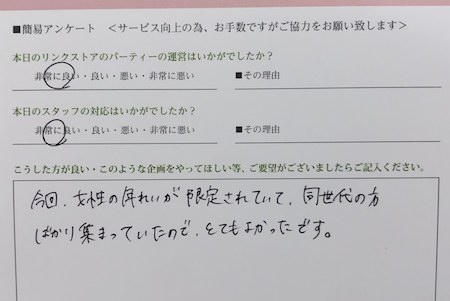 ■簡易アンケート　＜サービス向上の為、お手数ですがご協力をお願い致します＞
本日のリンクストアのパーティーの運営はいかがでしたか？
非常に良い・良い・悪い・非常に悪い　■その理由
本日のスタッフの対応はいかがでしたか？
非常に良い・良い・悪い・非常に悪い　■その理由
こうした方が良い・このような企画をやってほしい等、ご要望がございましたらご記入ください。
今回、女性の年れいが限定されていて、同世代の方
ばかり集まっていたので、とてもよかったです。